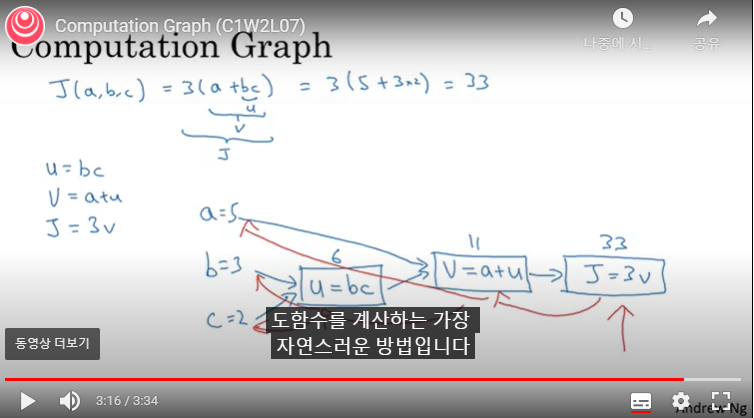 Computation Graph (C1W2L07)
나중에 시...
공유
Computation Graph
J(a,b,c) = 3(a+bc) = 3(5+3×2) = 33
u
V
J
u = bc
V = a+u
J = 3v
a=5
11
33
b=3
6
V = a+u
J = 3v
u = bc
c=2
도함수를 계산하는 가장
자연스러운 방법입니다
동영상 더보기
3:16 / 3:34
Andrew Ng